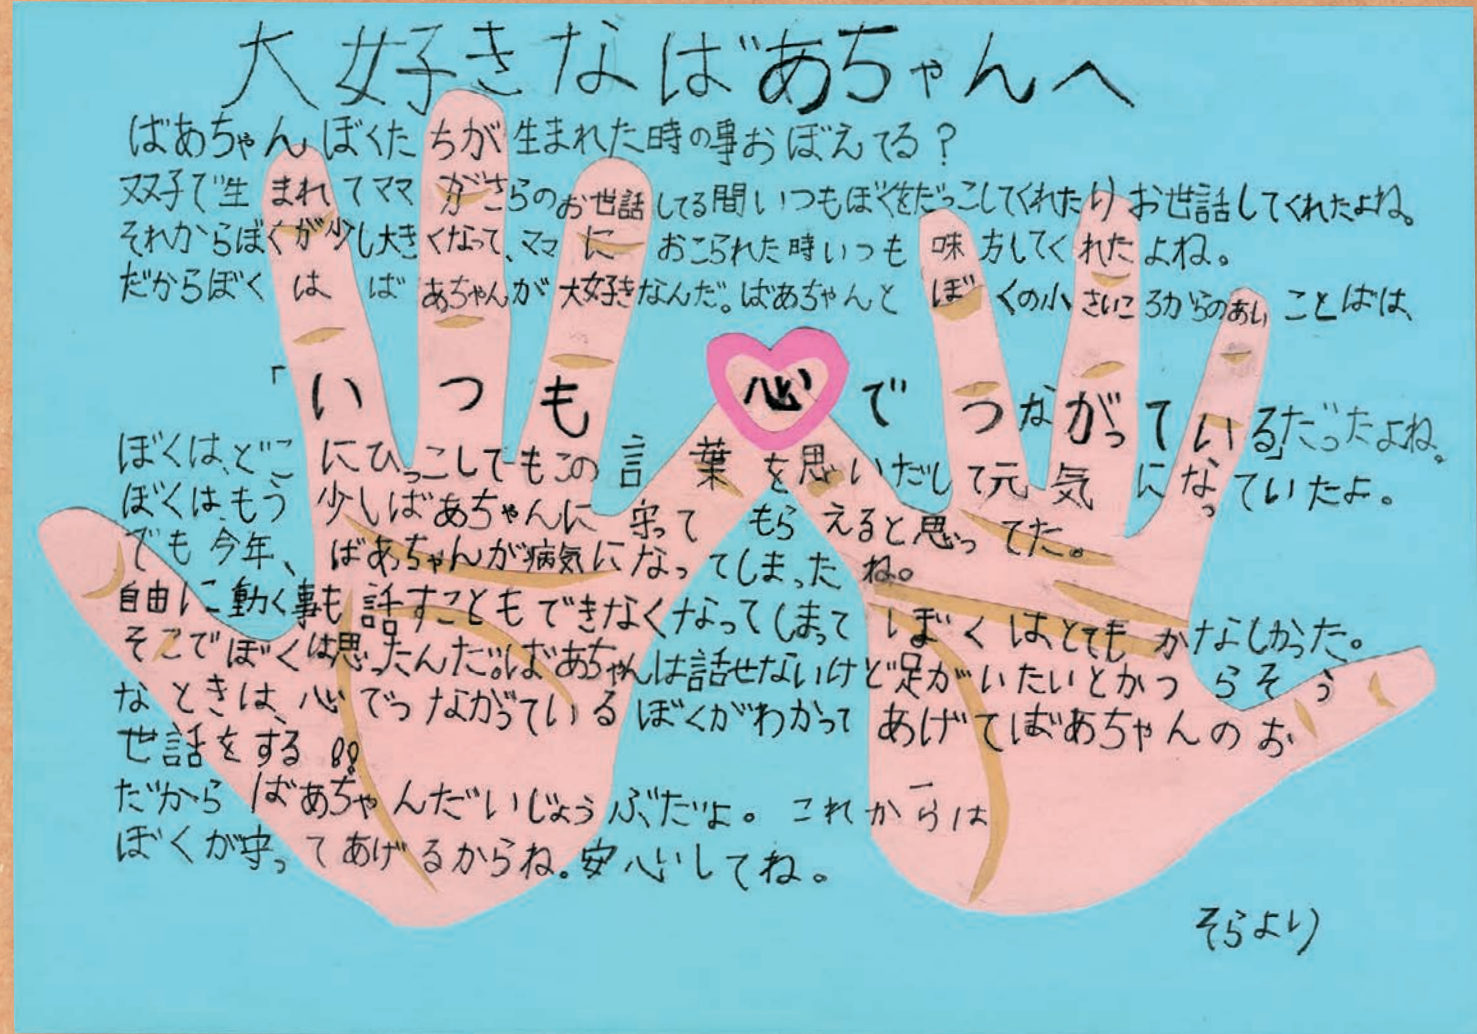 大好きなばあちゃんへ
ばあちゃんぼくたちが生まれた時の事おぼえてる？
双子で生まれてママがさらのお世話してる間いつもぼくをだっこしてくれたりお世話してくれたよね。
それからぼくが少し大きくなって、ママにおこられた時いつも味方してくれたよね。
だからぼくはばあちゃんが大好きなんだ。ばあちゃんとぼくの小さいころからのあいことばは、
「いつも心でつながっている」だったよね。
ぼくは、どこにひっこしてもこの言葉を思いだして元気になっていたよ。
ぼくはもう少しばあちゃんに守ってもらえると思ってた。
でも今年、ばあちゃんが病気になってしまったね。
自由に動く事も話すこともできなくなってしまってぼくは、とてもかなしかった。
そこでぼくは思ったんだ。ばあちゃんは話せないけど足がいたいとかつらそう
なときは、心でつながっているぼくがわかってあげてばあちゃんのお
世話をする!!
だからばあちゃんだいじょうぶだよ。これからは
ぼくが守ってあげるからね。安心してね。
そらより